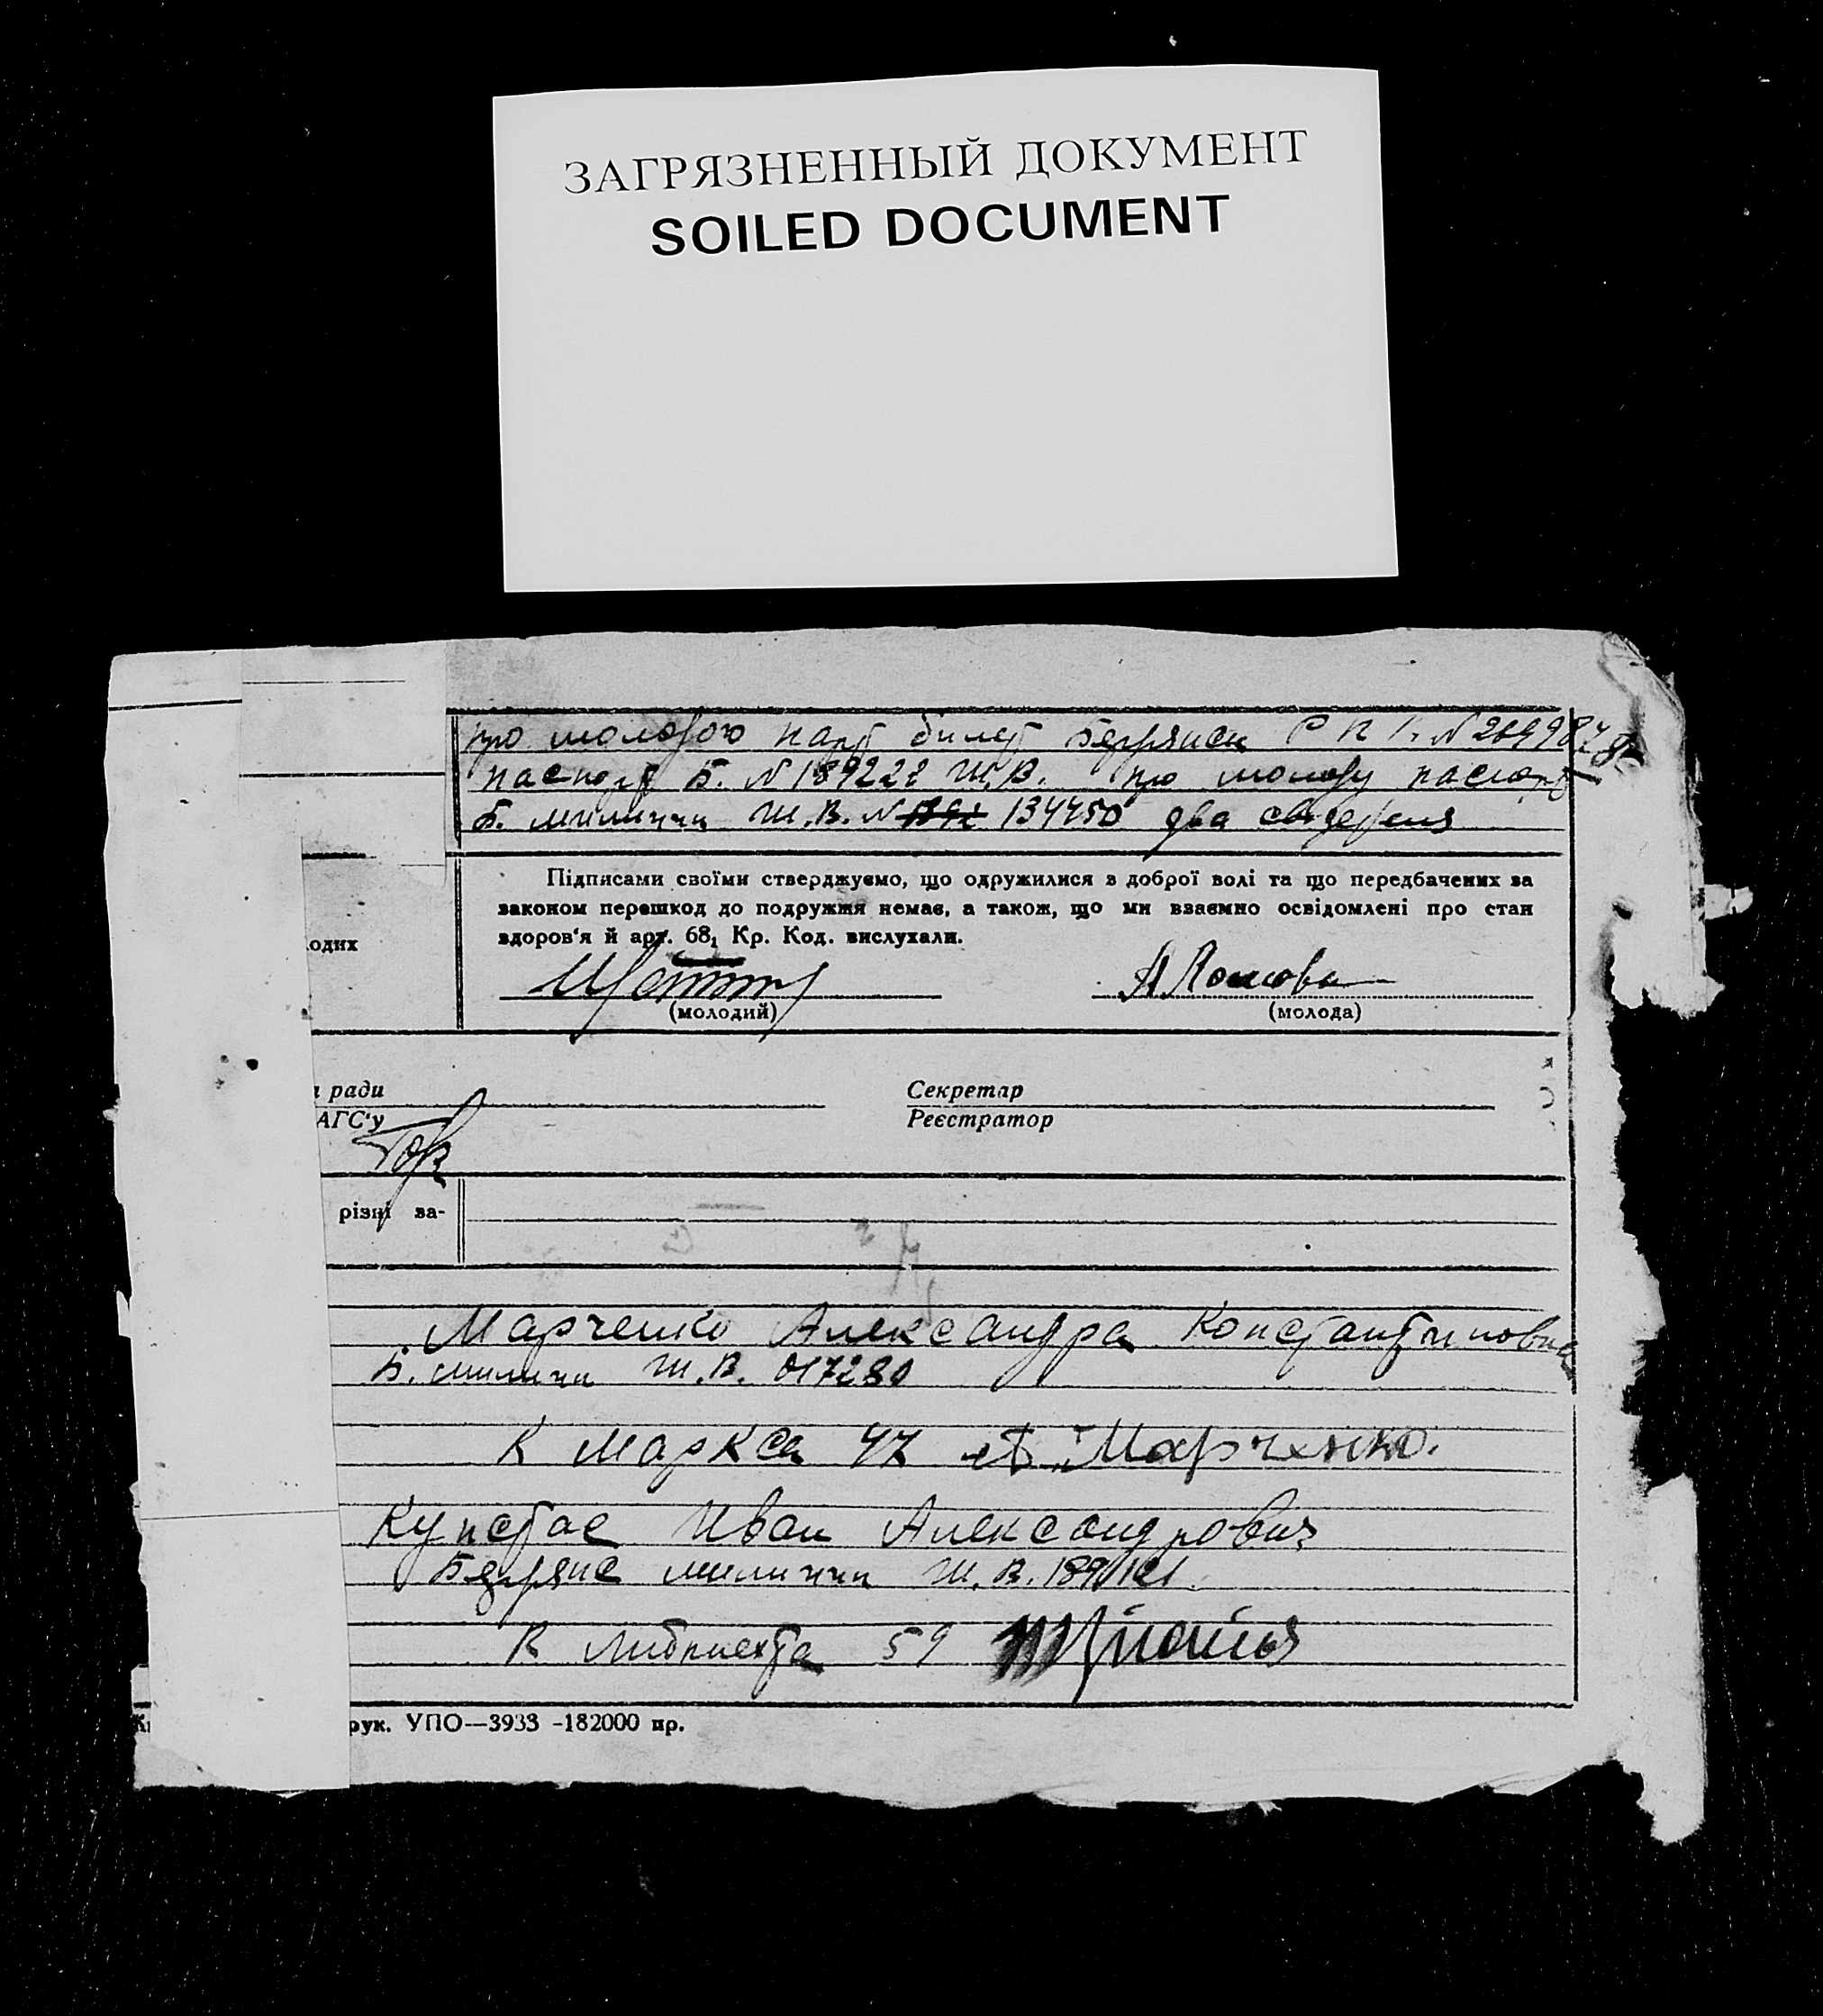 ЗАГРЯЗНЕННЫЙ ДОКУМЕНТ
SOILED DOCUMENT
про молодого парт билет Бердянск Р П К. N
паспорт Б. N 189222 Ш.В. про молоду паспорт
Б. милиции Ш.В. N 134450 два
Підписами своїми стверджуємо, що одружилися в доброї волі та що передбачених за
законом перешкод до подружжя немає, а також, що ми взаємно освідомлені про стан
здоров'я й арт. 68₁ Кр. Код. вислухали.
одих
(молодий) (молода)
ради Секретар
АГС'у Реєстратор
різні ва-
Марченко Александра Константиновна
Б. милиции Ш.В. 017280
К Маркса 47 Марченко.
Иван Александрович
Бердянс милиции Ш.В.
К Либкнехта 59
рук. УПО—3933 -182000 пр.